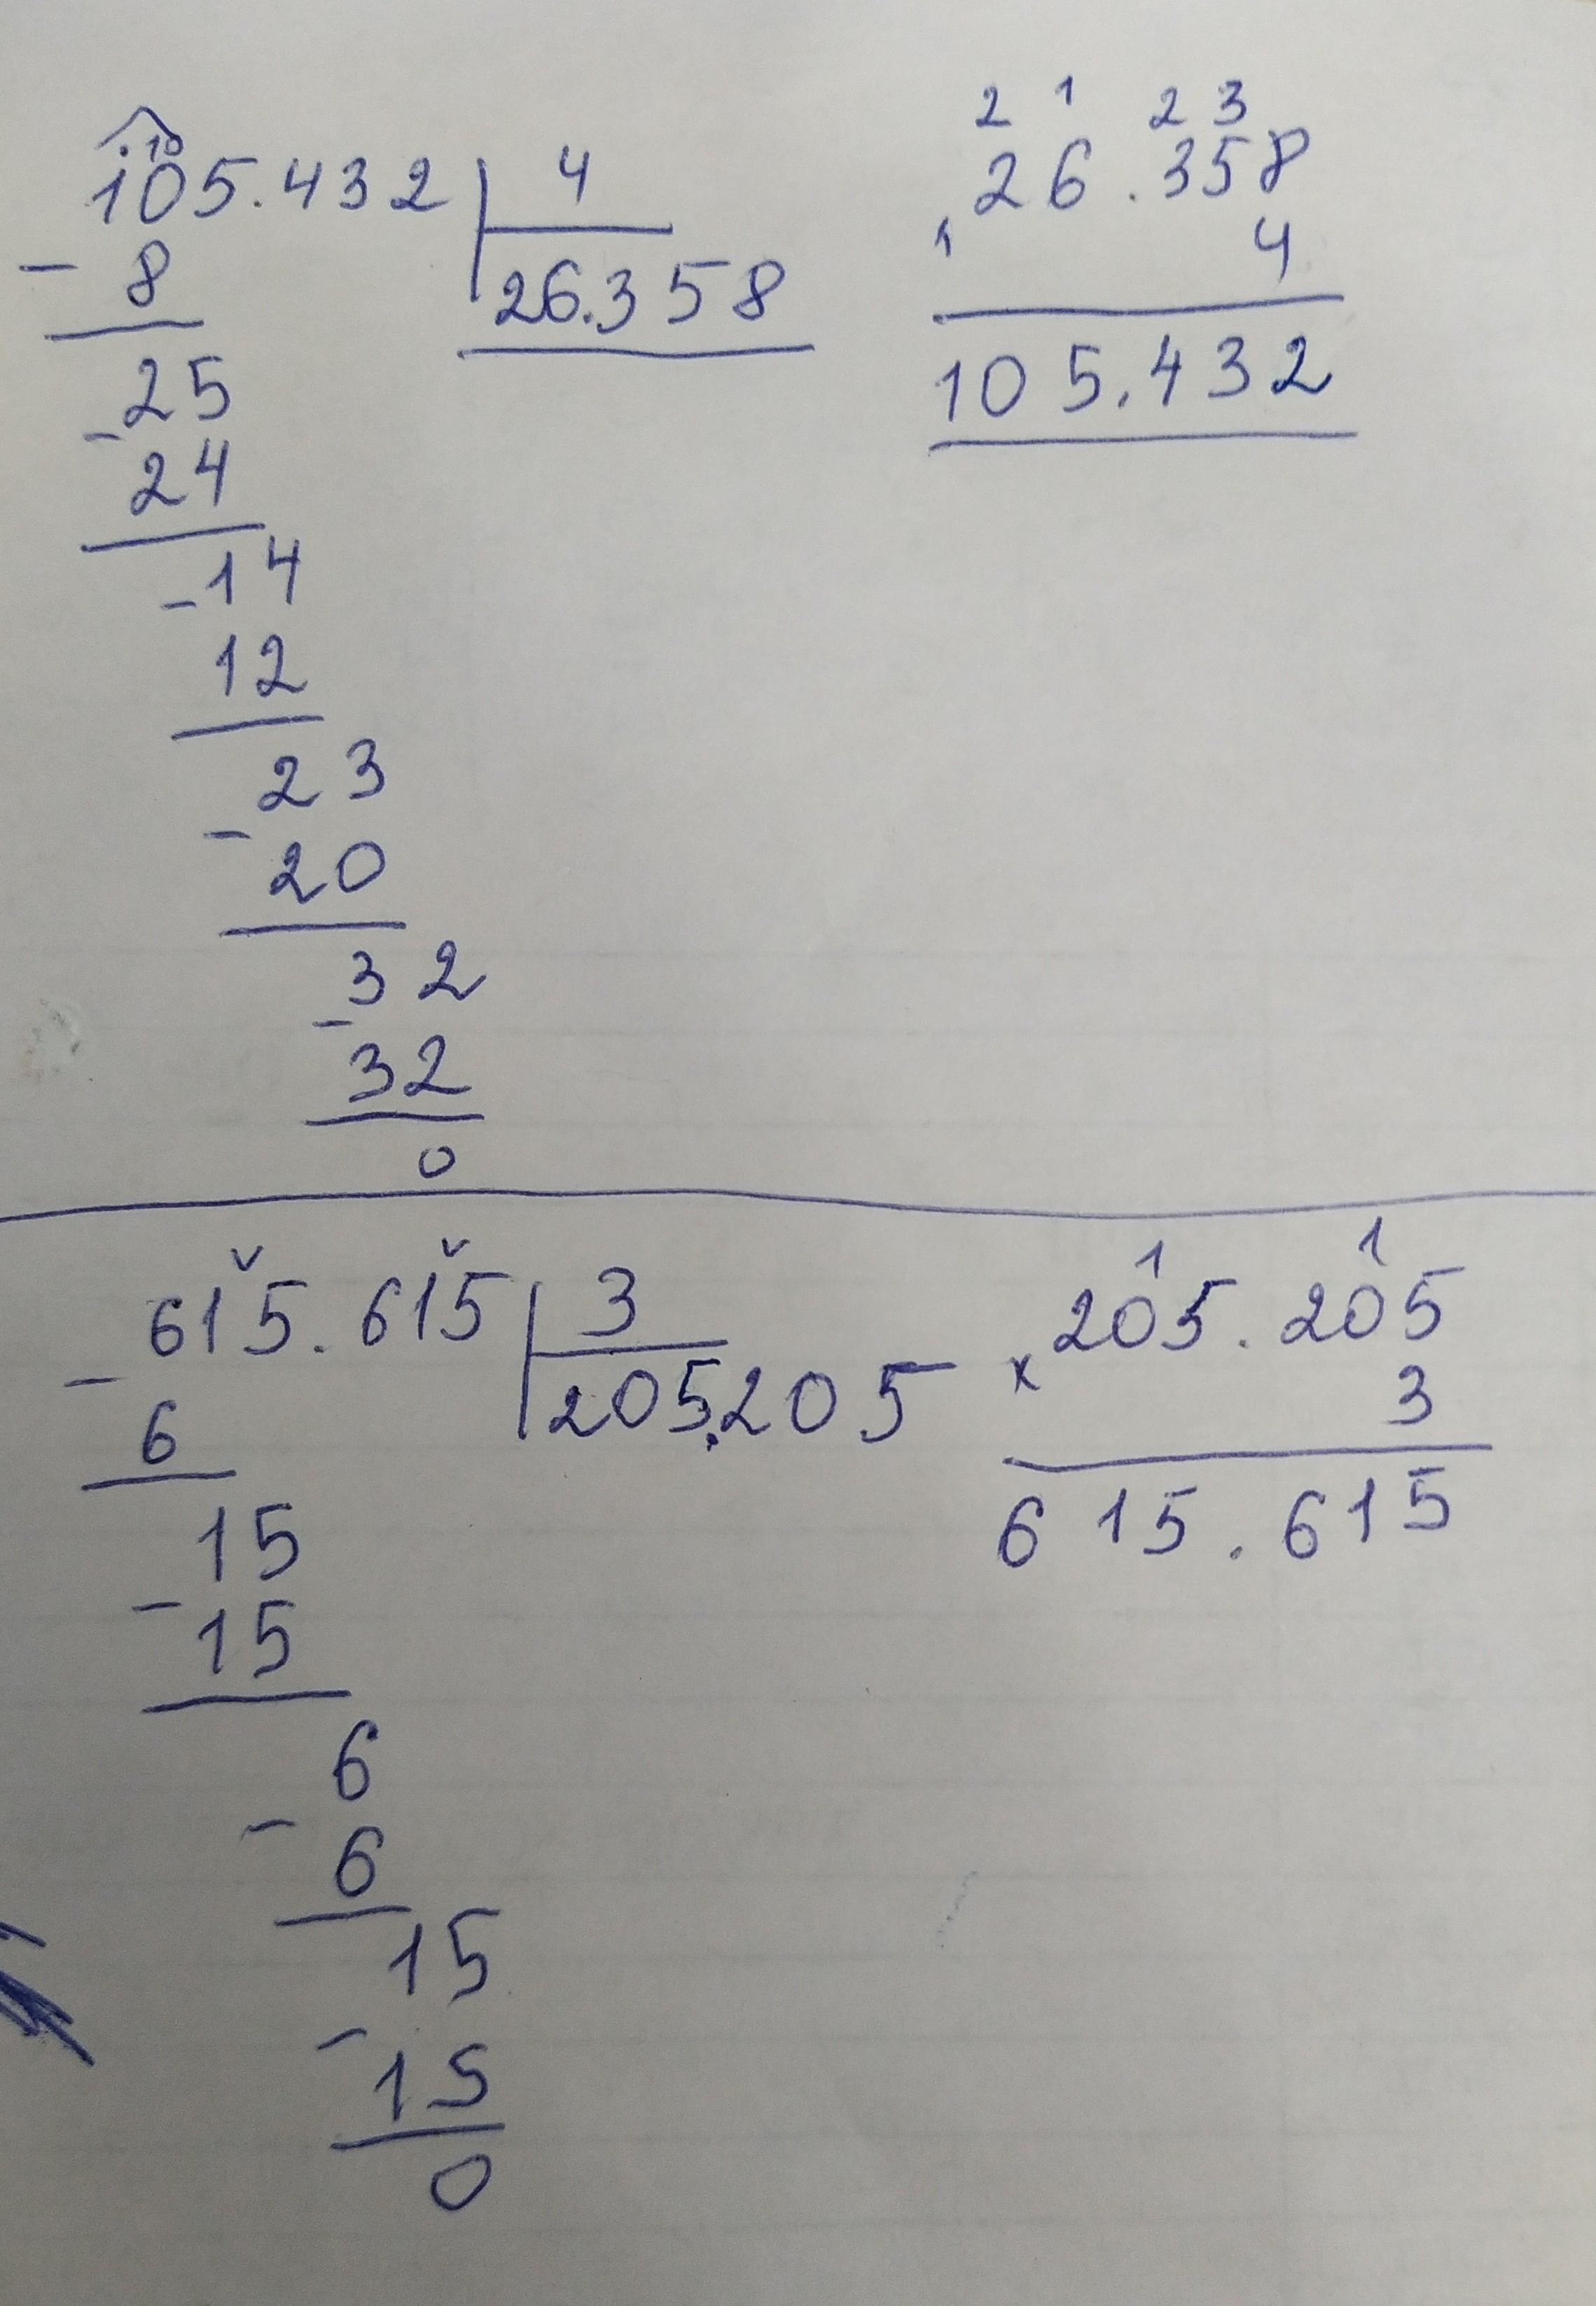 2 1 2 3
10
105.432 4 26.358
- 8 26.358 1 4
25 105.432
- 24
- 14
12
23
- 20
32
- 32
0
1 1
615.615 3 205.205
- 6 205.205 x 3
15 615.615
- 15
6
- 6
15
- 15
0